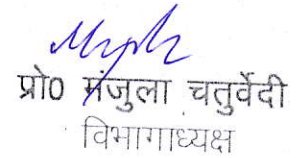 प्रो0 मंजुला चतुर्वेदी
विभागाध्यक्ष